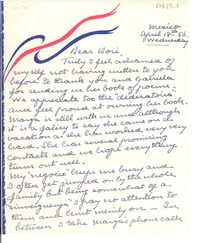 Mexico
April 18-56.
Wednesday
Dear Doris,
Truly I feel ashamed of
myself not having written to you
before to thank you and Gabriela
for sending in her books of poems.
We appreciate too the "dedicatoria"
and feel proud of owning her book.
Margo is still with us and although
it is a pity to say was on
vacation as she has worked very very
hard. She has several promising
contacts and we hope everything
turns out well.
My "negocio" keeps me busy and
I often get fussed on by the whole
family but being somewhat of a
"sinvergüenza" I pay no attention to
them and carry on. In
between I take Margo's phone calls